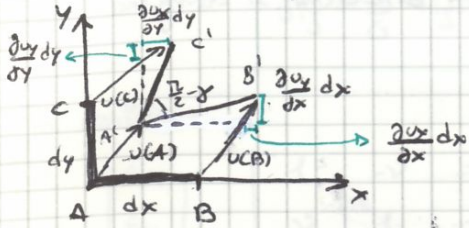 y
∂ux/∂y dy
c'
∂uy/∂y dy
I
π/2-γ
B'
∂uy/∂x dx
C
u(C)
A'
dy
u(A)
u(B)
∂ux/∂x dx
A
dx
B
x